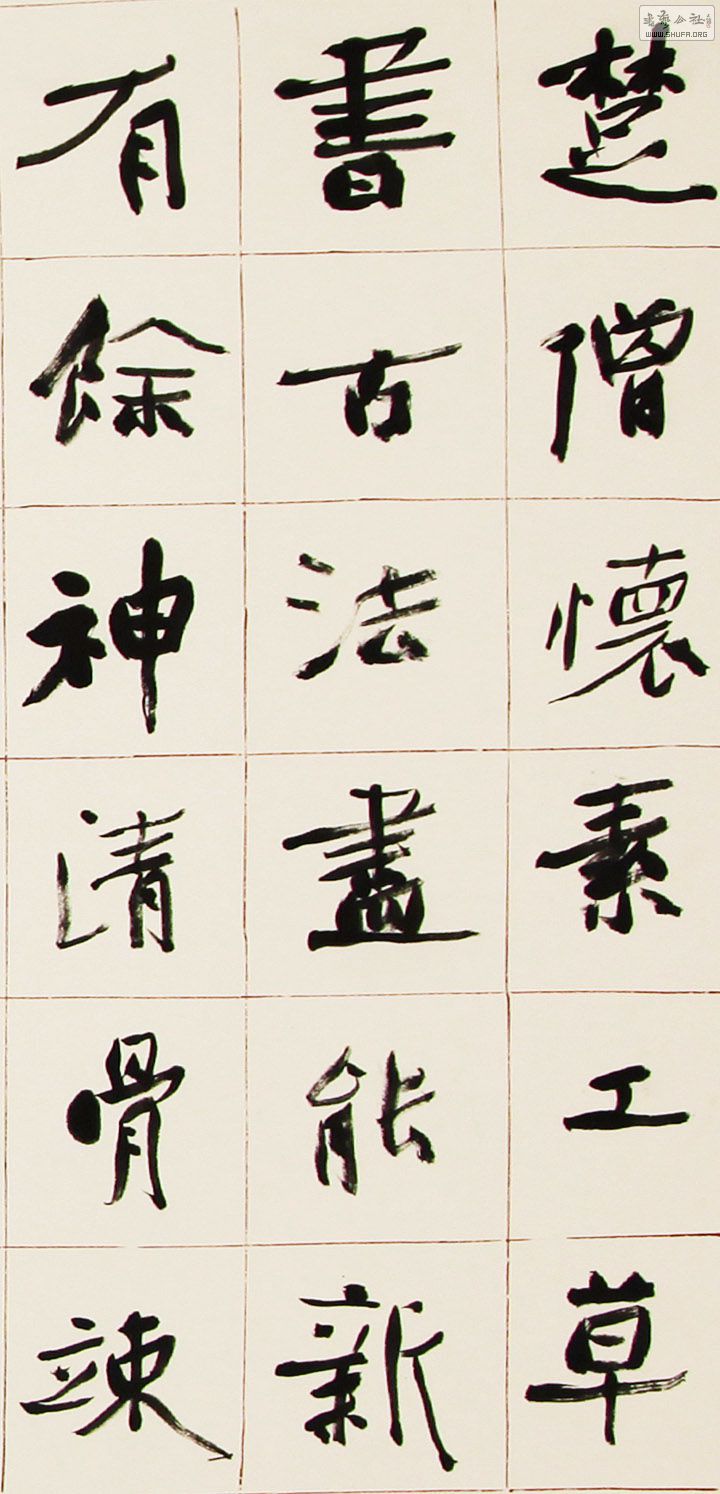 楚僧懷素工草
書古法盡能新
有餘神清骨竦
書法公社
WWW.SHUFA.ORG